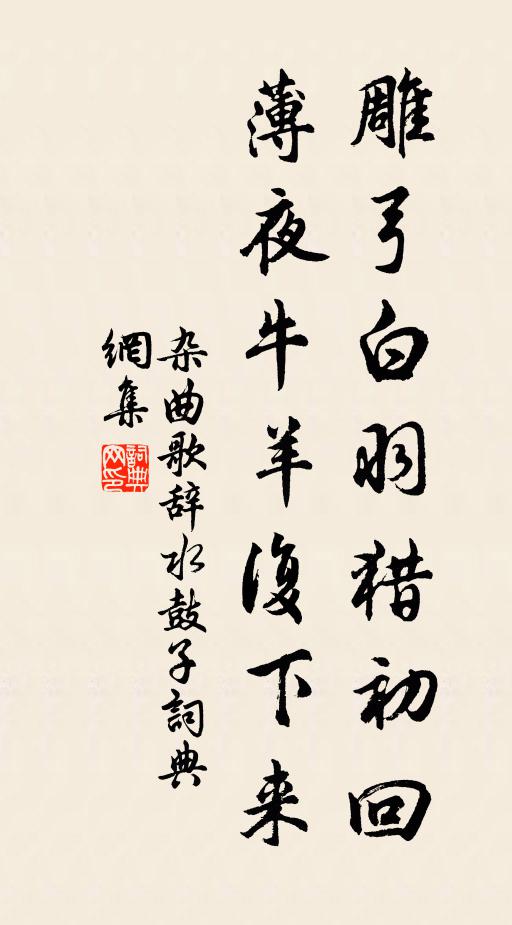 雕弓白羽猎初回
薄夜牛羊復下来
杂曲歌辞水鼓子詞典
網集
詞典
网印